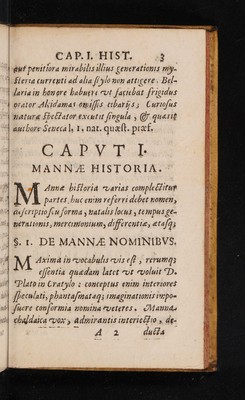 CAP. I. HIST. 3
aut penitiora mirabilis illius generationis my-
steria currenti ad alia stylo non attigere. Bel-
laria in honore habuere ut faciebat frigidus
orator Alcidamas omissis cibarijs; Curiosus
naturæ spectator excutit singula, & quærit
authore Seneca l. 1. nat. quæst. præf.
CAPVT I.
MANNÆ HISTORIA.
MAnnæ historia varias complectitur
partes, huc enim referri debet nomen,
descriptio seu forma, natalis locus, tempus ge-
nerationis, mercimonium, differentiæ, ætasq;
§. 1. DE MANNÆ NOMINIBVS.
MAxima in vocabulis vis est, rerumq;
essentia quædam latet ut voluit D.
Plato in Cratylo: conceptus enim interiores
speculati, phantasmataq; imaginationis impo-
suere conformia nomina veteres. Manna
chaldaica vox, admirantis interiectio, de-
A 2 ducta